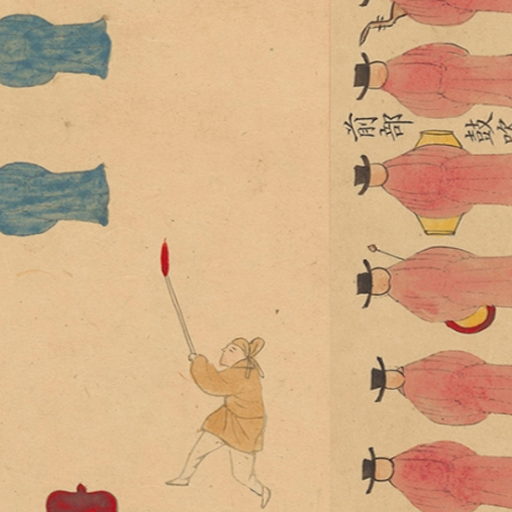 前部鼓吹